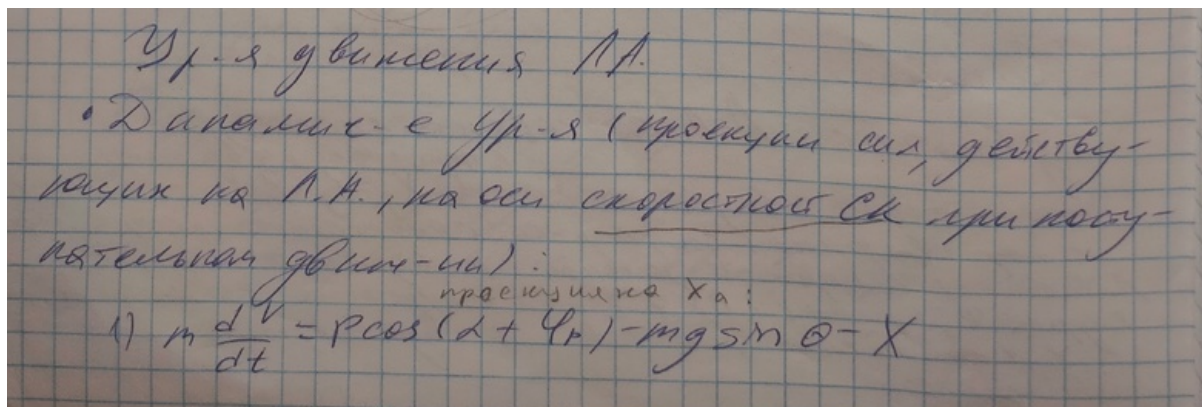 Ур-я движения ЛА.
• Динамич-е ур-я (проекции сил, действу-
ющих на Л.А., на оси скоростной СК при посту-
пательном движ-ии):
проекция на Xa:
1) m dV/dt = P cos(α + φp) - mg sin θ - X